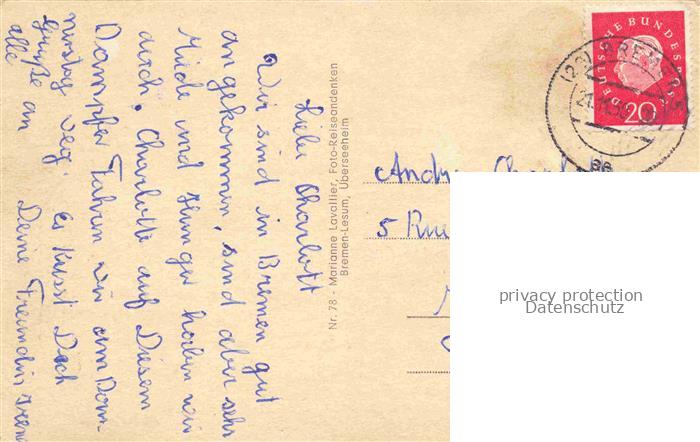 Liebe Charlott
Wir sind in Bremen gut
angekommen, sind aber sehr
Müde und Hunger haben wir
auch. Charlotte auf Diesem
Dampfer Fahren wir am Donn-
nerstag weg. Es küsst Dich
Grüße an Deine Freundin
alle
Nr. 78 - Marianne Lavallier, Foto-Reiseandenken
Bremen-Lesum, Überseeheim
DEUTSCHE BUNDESPOST
20
(23) BREMEN 5
5 Rue
privacy protection
Datenschutz